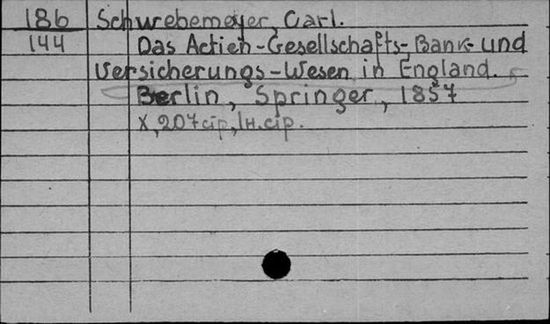 186 Schwebemeyer, Carl.
144 Das Actien-Gesellschafts-, Bank- und
Versicherungs-Wesen in England.
Berlin, Springer, 1857
X, 207 cip, 1H. cip.